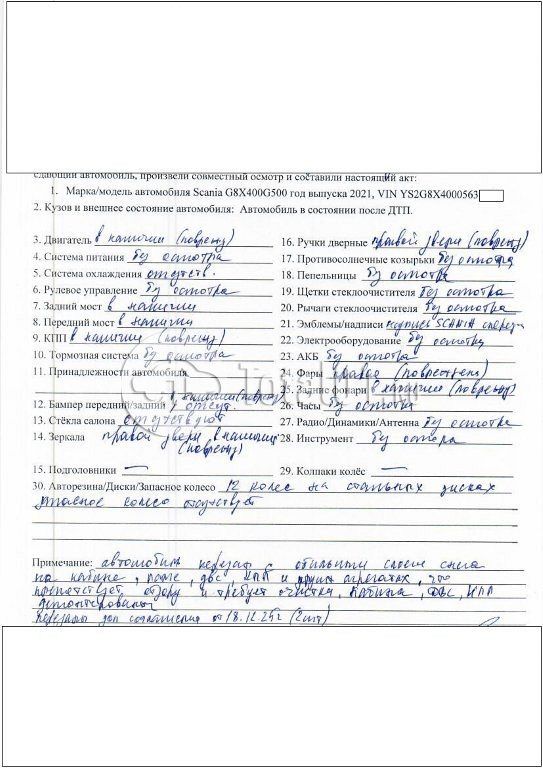 сдающий автомобиль, произвели совместный осмотр и составили настоящий акт:
1. Марка/модель автомобиля Scania G8X400G500 год выпуска 2021, VIN YS2G8X4000563
2. Кузов и внешнее состояние автомобиля: Автомобиль в состоянии после ДТП.
3. Двигатель в наличии (поврежд)
4. Система питания без осмотра
5. Система охлаждения отсутств.
6. Рулевое управление без осмотра
7. Задний мост в наличии
8. Передний мост в наличии
9. КПП в наличии (поврежд)
10. Тормозная система без осмотра
11. Принадлежности автомобиля
12. Бампер передний/задний в наличии (поврежд) / отсут.
13. Стёкла салона отсутствуют
14. Зеркала правой двери в наличии (поврежд)
15. Подголовники —
16. Ручки дверные правой двери (поврежд)
17. Противосолнечные козырьки без осмотра
18. Пепельницы без осмотра
19. Щетки стеклоочистителя без осмотра
20. Рычаги стеклоочистителя без осмотра
21. Эмблемы/надписи SCANIA
22. Электрооборудование без осмотра
23. АКБ без осмотра
24. Фары правая
25. Задние фонари в наличии (поврежд)
26. Часы без осмотра
27. Радио/Динамики/Антенна без осмотра
28. Инструмент без осмотра
29. Колпаки колёс —
30. Авторезина/Диски/Запасное колесо 12 колес на стальных дисках
запасное колесо отсутствует
Примечание: автомобиль передан с обильным слоем снега
на кабине, раме, двс, КПП и других агрегатах, что
препятствует осмотру и требует очистки, Кабина, ДВС, КПП
демонтированы
соглашения от 18.12.25г (2шт)